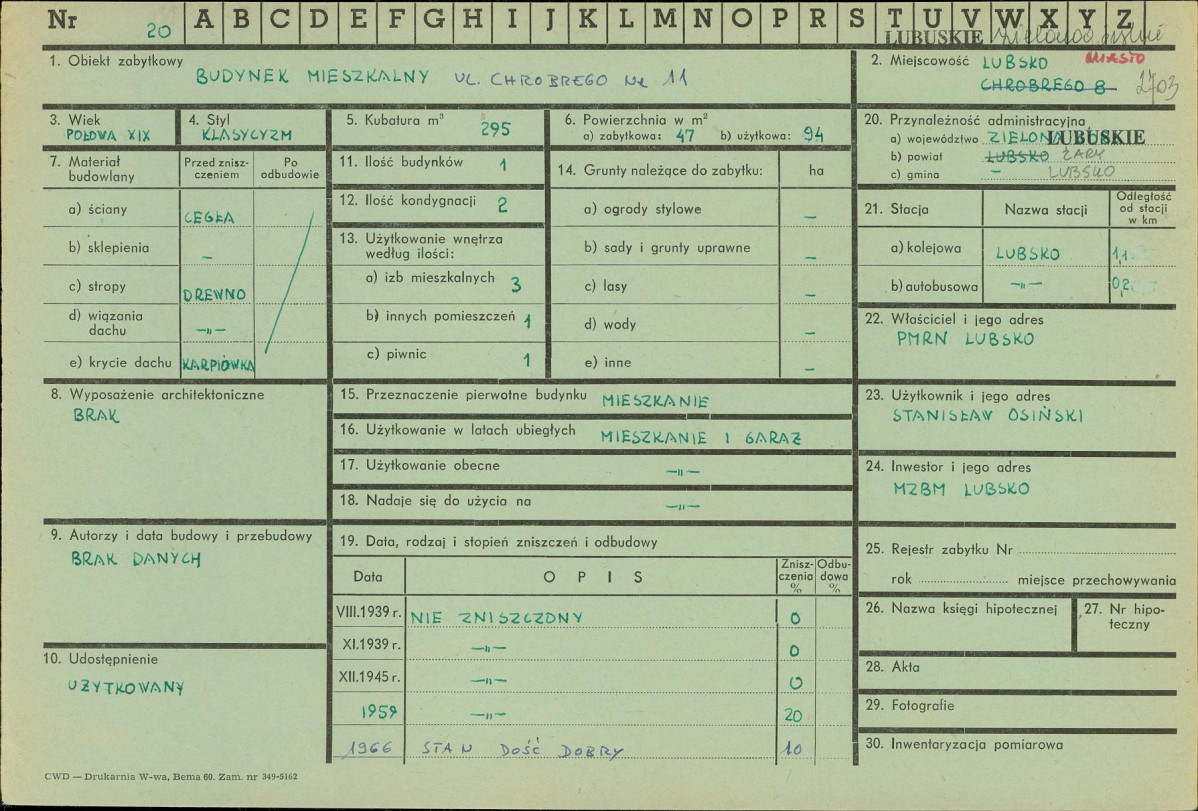 Nr 20 A B C D E F G H I J K L M N O P R S T U V W X Y Z
LUBUSKIE
1. Obiekt zabytkowy BUDYNEK MIESZKALNY UL. CHROBREGO Nr 11
2. Miejscowość LUBSKO MIASTO
CHROBREGO 8 2703
3. Wiek POŁOWA XIX
4. Styl KLASYCYZM
5. Kubatura m³ 295
6. Powierzchnia w m²
a) zabytkowa: 47 b) użytkowa: 94
20. Przynależność administracyjna
a) województwo ZIELONA LUBUSKIE
b) powiat LUBSKO ŻARY
c) gmina – LUBSKO
7. Materiał budowlany
Przed zniszczeniem
Po odbudowie
a) ściany CEGŁA
b) sklepienia –
c) stropy DREWNO
d) wiązania dachu –"–
e) krycie dachu KARPIÓWKA
11. Ilość budynków 1
12. Ilość kondygnacji 2
13. Użytkowanie wnętrza według ilości:
a) izb mieszkalnych 3
b) innych pomieszczeń 1
c) piwnic 1
14. Grunty należące do zabytku: ha
a) ogrody stylowe –
b) sady i grunty uprawne –
c) lasy –
d) wody –
e) inne –
21. Stacja
Nazwa stacji
Odległość od stacji w km
a) kolejowa LUBSKO 1,1
b) autobusowa –"– 0,2
22. Właściciel i jego adres
PMRN LUBSKO
8. Wyposażenie architektoniczne
BRAK
15. Przeznaczenie pierwotne budynku MIESZKANIE
16. Użytkowanie w latach ubiegłych MIESZKANIE I GARAŻ
17. Użytkowanie obecne –"–
18. Nadaje się do użycia na –"–
23. Użytkownik i jego adres
STANISŁAW OSIŃSKI
24. Inwestor i jego adres
MZBM LUBSKO
9. Autorzy i data budowy i przebudowy
BRAK DANYCH
10. Udostępnienie
UŻYTKOWANY
19. Data, rodzaj i stopień zniszczeń i odbudowy
Data OPIS Zniszczenia % Odbudowa %
VIII.1939 r. NIE ZNISZCZONY 0
XI.1939 r. –"– 0
XII.1945 r. –"– 0
1959 –"– 20
1966 STAN DOŚĆ DOBRY 10
25. Rejestr zabytku Nr
rok miejsce przechowywania
26. Nazwa księgi hipotecznej
27. Nr hipoteczny
28. Akta
29. Fotografie
30. Inwentaryzacja pomiarowa
CWD — Drukarnia W-wa, Bema 60. Zam. nr 349-5162